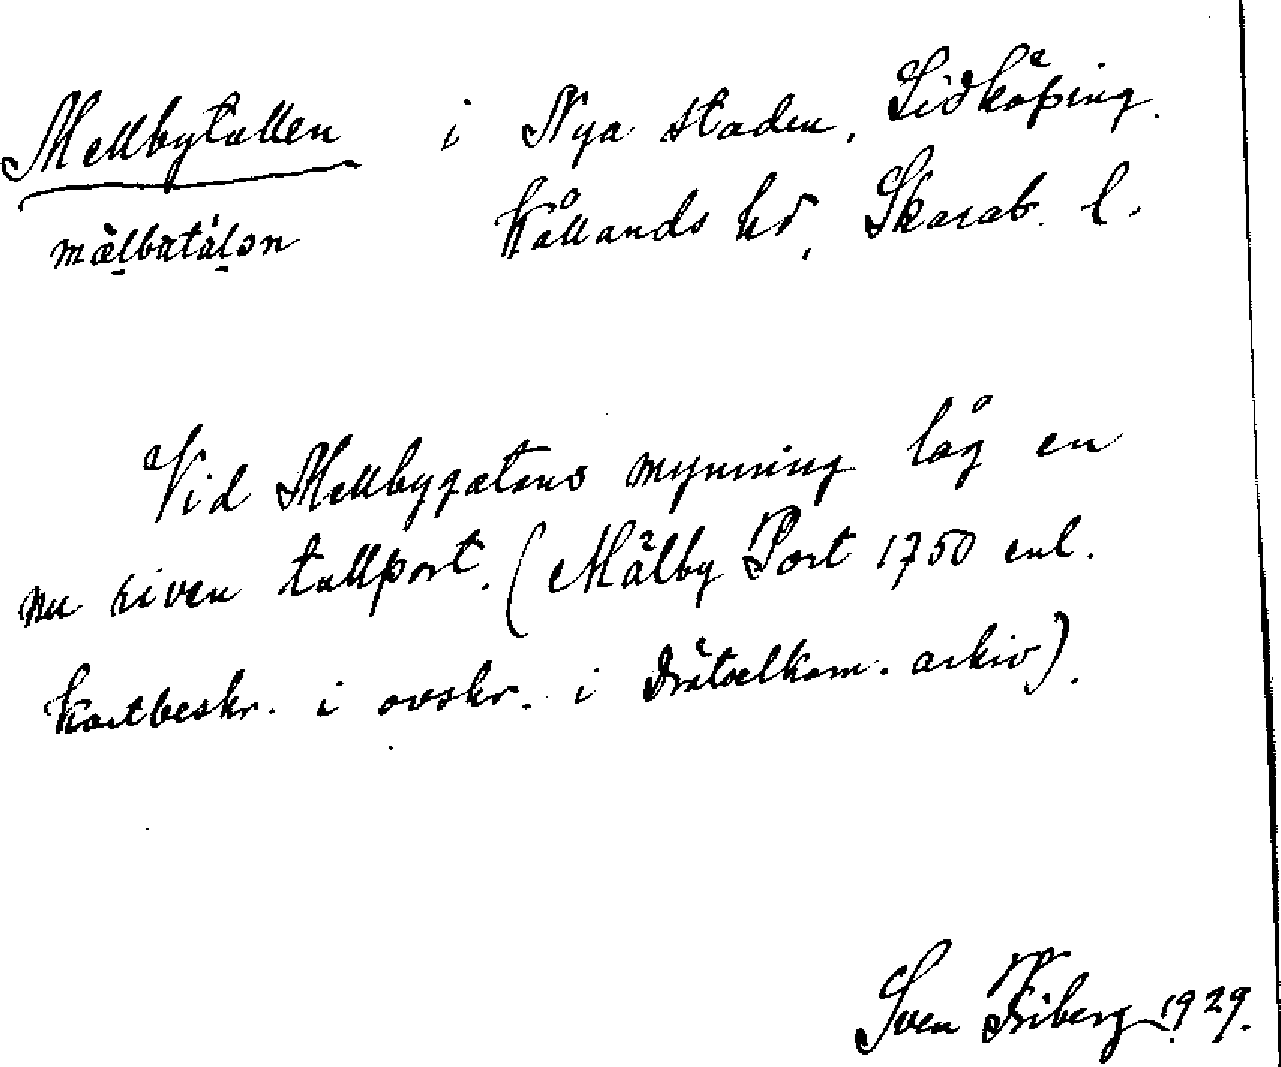 Mellbytullen i Nya staden, Lidköping.
mälbatúlɔn Kållands hd, Skarab. l.
Vid Mellbygatans mynning låg en
nu riven tullport. (Mälby Port 1750 enl.
kartbeskr. i avskr. i Drätselkam. arkiv).
Sven Friberg 1929.